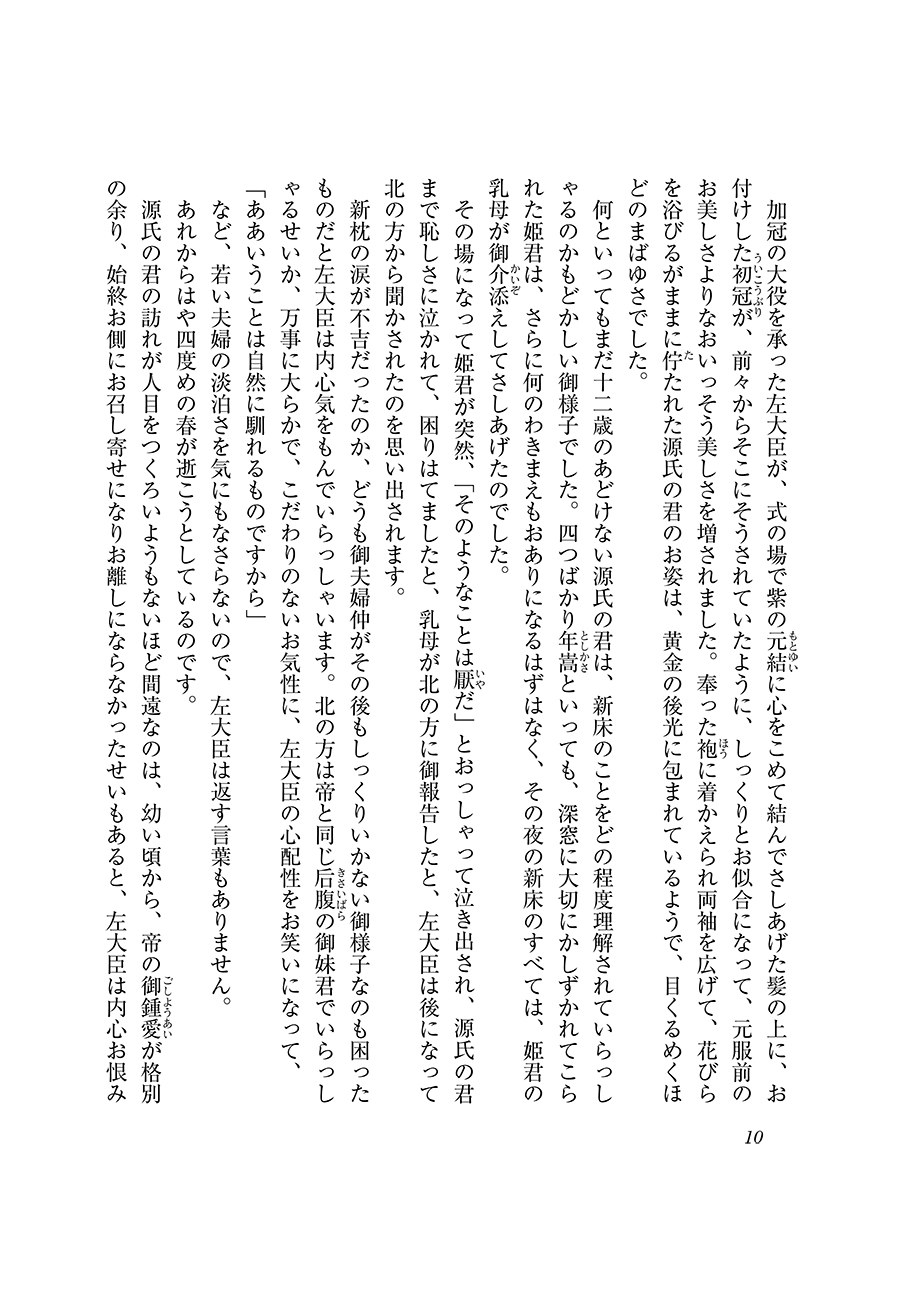 加冠の大役を承った左大臣が、式の場で紫の元結に心をこめて結んでさしあげた髪の上に、お
付けした初冠が、前々からそこにそうされていたように、しっくりとお似合になって、元服前の
お美しさよりなおいっそう美しさを増されました。奉った袍に着かえられ両袖を広げて、花びら
を浴びるがままに佇たれた源氏の君のお姿は、黄金の後光に包まれているようで、目くるめくほ
どのまばゆさでした。
何といってもまだ十二歳のあどけない源氏の君は、新床のことをどの程度理解されていらっし
ゃるのかもどかしい御様子でした。四つばかり年嵩といっても、深窓に大切にかしずかれてこら
れた姫君は、さらに何のわきまえもおありになるはずはなく、その夜の新床のすべては、姫君の
乳母が御介添えしてさしあげたのでした。
その場になって姫君が突然、「そのようなことは厭だ」とおっしゃって泣き出され、源氏の君
まで恥しさに泣かれて、困りはてましたと、乳母が北の方に御報告したと、左大臣は後になって
北の方から聞かされたのを思い出されます。
新枕の涙が不吉だったのか、どうも御夫婦仲がその後もしっくりいかない御様子なのも困った
ものだと左大臣は内心気をもんでいらっしゃいます。北の方は帝と同じ后腹の御妹君でいらっし
ゃるせいか、万事に大らかで、こだわりのないお気性に、左大臣の心配性をお笑いになって、
「ああいうことは自然に馴れるものですから」
など、若い夫婦の淡泊さを気にもなさらないので、左大臣は返す言葉もありません。
あれからはや四度めの春が逝こうとしているのです。
源氏の君の訪れが人目をつくろいようもないほど間遠なのは、幼い頃から、帝の御鍾愛が格別
の余り、始終お側にお召し寄せになりお離しにならなかったせいもあると、左大臣は内心お恨み
10